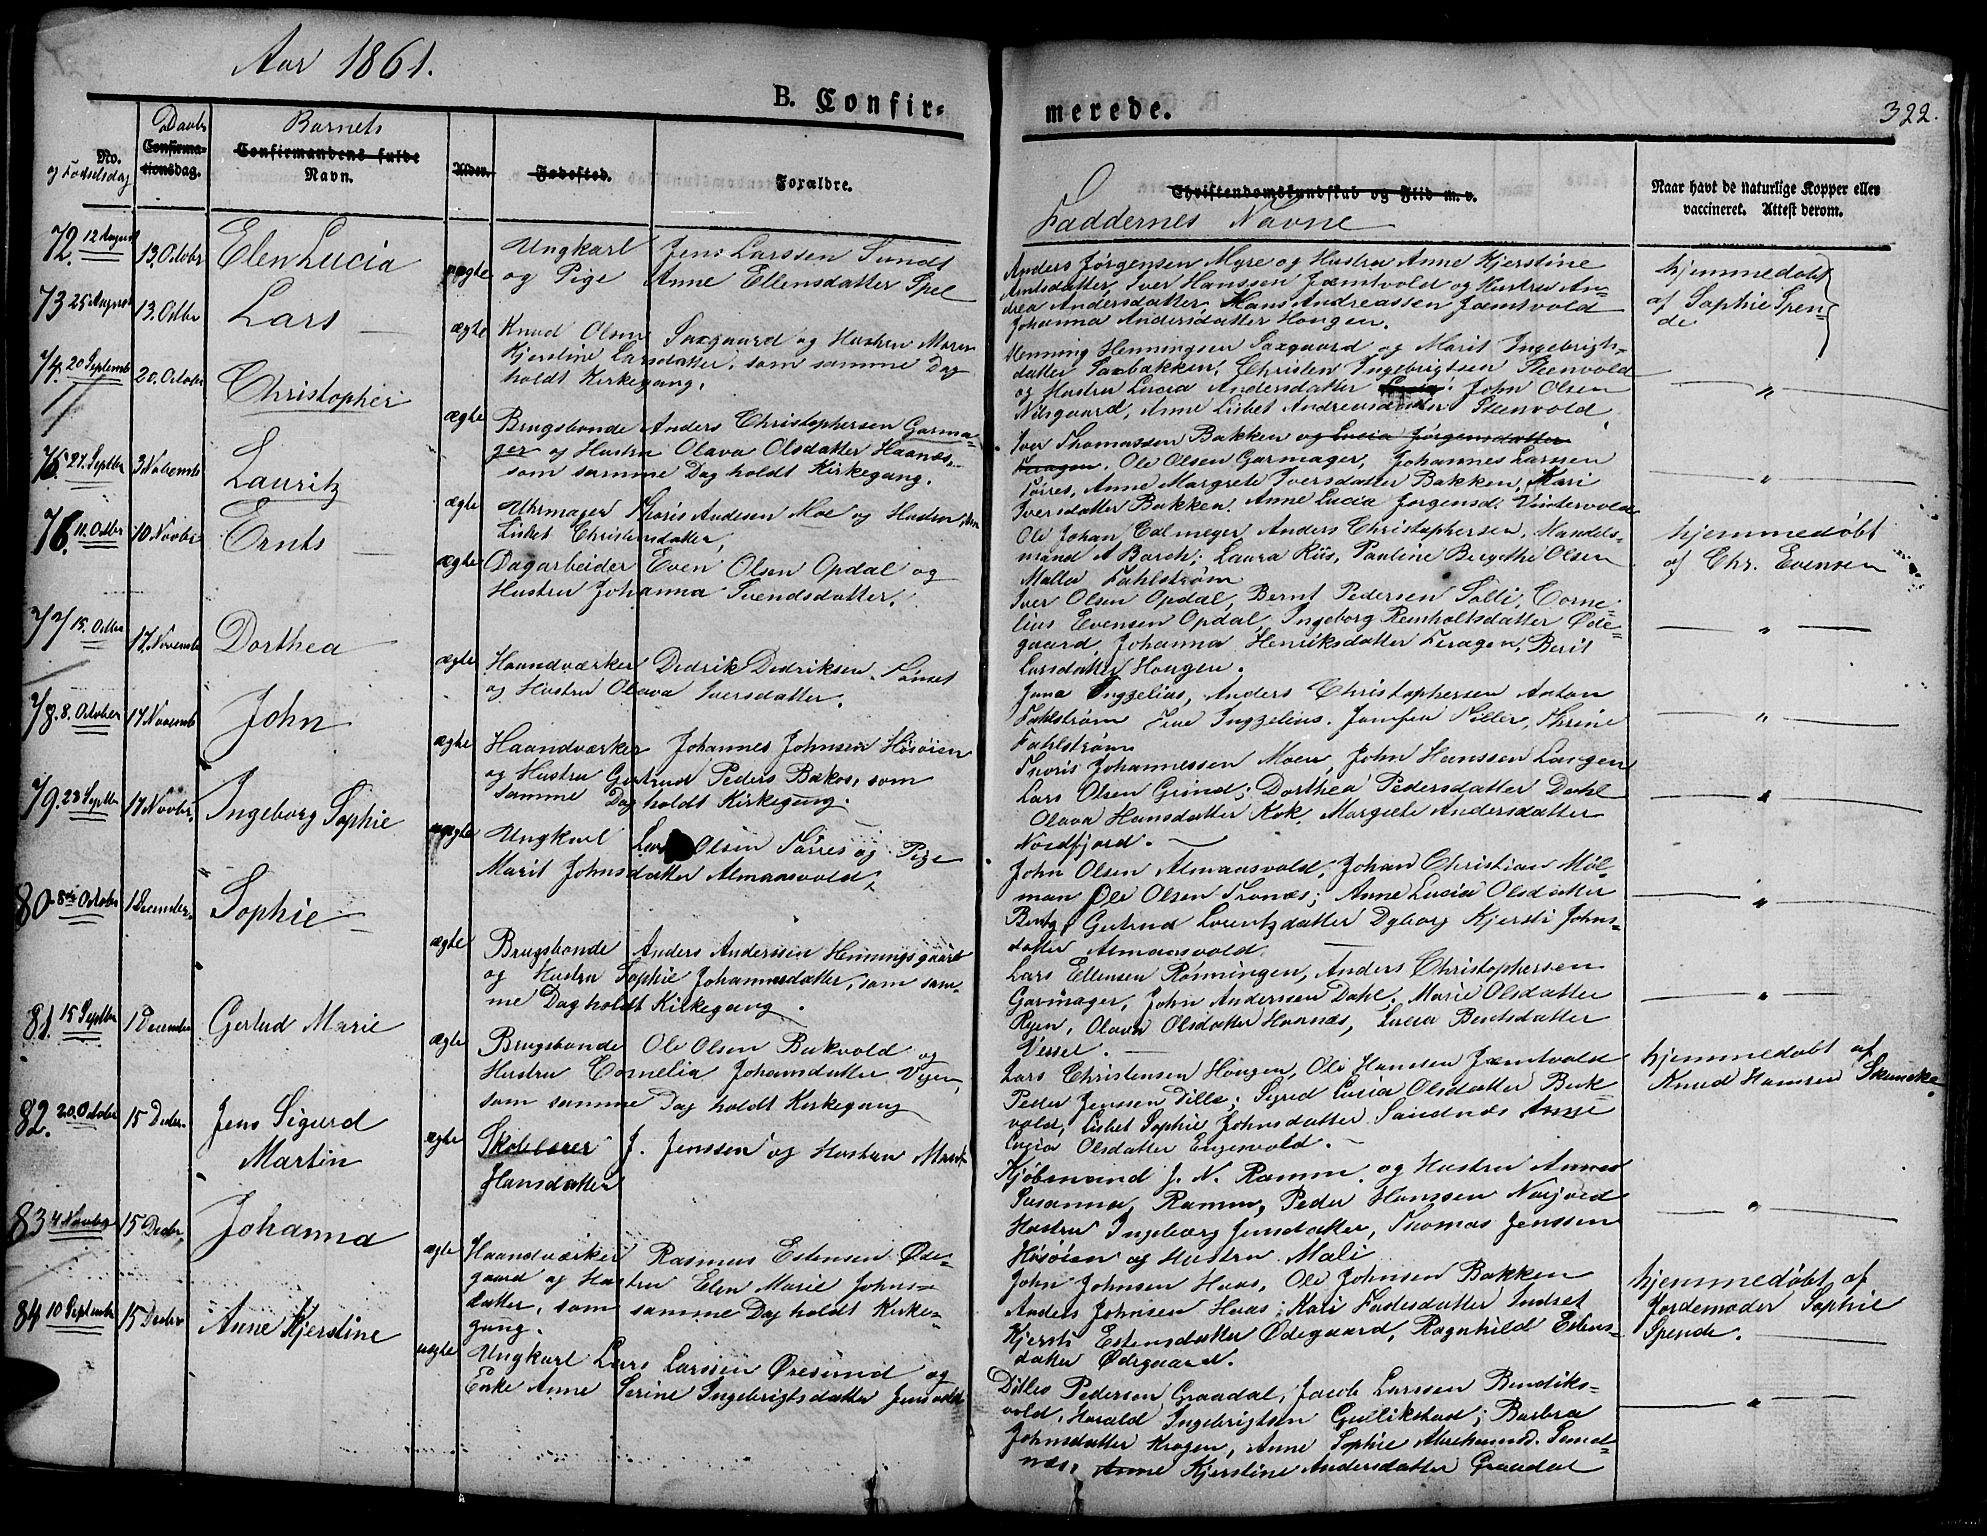 Aar 1861.
B. Confir-
merede.
322.
No. og Fødselsdag
Daabs
Confirmationsdag.
Barnets
Confirmandens fulde
Navn.
Alder.
Fødested.
Forældre.
Christendomskundskab og Flid m. v.
Faddernes Navne
Naar havt de naturlige Kopper eller
vaccineret. Attest derom.
72. 12 August
13. Octobr
Elen Lucia
uægte
Ungkarl Jens Larssen Sundt
og Pige Anne Ellensdatter Spel
Anders Jørgensen Myre og Hustru Anne Kjerstine
Amtsdatter, Iver Hanssen Jæmtvold og Hustru An-
drea Andersdatter, Hans Andreassen Jæmtvold
Johanna Andersdatter Hougen.
hjemmedøbt
af Sophie Spen-
de
73 25 August
13. Octbr
Lars
ægte
Knud Olsen Saxgaard og Hustru Maren
Kjerstine Larsdatter, som samme Dag
holdt Kirkegang.
Henning Henningsen Saxgaard og Marit Ingebrigts-
datter Saxbakken, Christen Ingebrigtsen Steenvold
og Hustru Lucia Andersdatter John Olsen
Nilsgaard, Anne Lisbet Andreasdatter Steenvold
"
74. 20 Septembr
20. Octobr
Christopher
ægte
Brugsbonde Anders Christophersen Garma-
ger og Hustru Olava Olsdatter Haanæs,
som samme Dag holdt Kirkegang.
Iver Thomassen Bakken og Lucia Jørgensdatter
Feragen, Ole Olsen Garmager, Johannes Larsen
Tørres, Anne Margrete Iversdatter Bakken, Mari
Iversdatter Bakken. Anne Lucia Jørgensd. Vintervold
"
75. 27. Septbr
3 Novembr
Lauritz
ægte
Uhrmager Thoris Andesen Moe og Hustru Ane
Lisbet Christensdatter,
Ole Johan Edlmeger, Anders Christophersen, Handels-
mand A Borch; Laura Riis, Pauline Bergethe Olsen
Malla Fahlstrøm
hjemmedøbt
af Chr. Evensen
76. 11. Octbr
10 Novbr
Ernts
ægte
Dagarbeider Even Olsen Opdal og
Hustru Johanna Svendsdatter.
Iver Olsen Opdal, Bernt Pedersen Solli, Corne-
lius Evensen Opdal, Ingeborg Reinholtsdatter Øde-
gaard, Johanna Henriksdatter Feragen, Berit
Larsdatter Hougen.
"
77 15. Octbr
17. Novembr
Dorthea
ægte
Haandværker Dedrik Dedriksen Tønset
og Hustru Olava Iversdatter.
Jana Inggelius, Anders Christophersen Anton
Fahlstrøm Frue Inggelius. Jomfru Niller, Thrine
Fahlstrøm
"
78. 8. October
17 Novembr
John
ægte
Haandværker Johannes Johnsen Høsøien
og Hustru Gertrud Peders Bakos, som
samme Dag holdt Kirkegang.
Thoris Johannessen Moen, John Hanssen Langen
Lars Olsen Grind; Dorthea Pedersdatter Dahl
Olava Hansdatter Kok, Margrete Andersdatter
Nordfjord.
"
79. 23 Septbr
17 Novbr.
Ingeborg Sophie
uægte
Ungkarl Lars Olsen Tørres og Pige
Marit Johnsdatter Almaasvold,
John Olsen Almaasvold, Johan Christian Møl-
man Ole Olsen Tronæs; Anne Lucia Olsdatter
Berg, Gertrud Lorentzdatter Dyborg Kjersti Johns-
datter Almaasvold.
"
80. 8de Octobr
1 December.
Sophie
ægte
Brugsbonde Anders Anderssen Henningsgaard
og Hustru Sophie Johannesdatter, som sam-
me Dag holdt Kirkegang.
Lars Ellensen Rønningen, Anders Christophersen
Garmager, John Anderssen Dahl, Marie Olsdatter
Ryen, Olava Olsdatter Haanæs, Lucia Bentsdatter
Vessel.
"
81. 15 Septbr
1 December
Gertud Marie
ægte
Brugsbonde Ole Olsen Bukvold og
Hustru Cornelia Johansdatter Vejen,
som samme Dag holdt Kirkegang
Lars Christensen Hougen, Ole Hansen Jæmtvold
Peder Jenssen Dille; Sigrid Lucia Olsdatter Buk-
vold, Lisbet Sophie Johnsdatter Sandnæs Anne
Lucia Olsdatter Engenvold.
hjemmedøbt af
Knud Hansen Skancke.
82. 20. Octobr
15 Decbr.
Jens Sigurd
Martin
ægte
Skolelærer J. Jenssen og Hustru Marit
Hansdatter
Kjøbmand J. N. Ramm og Hustru Annes
Susanna, Ramm, Peder Hanssen Narjord
Hustru Ingeborg Jensdatter, Thomas Jenssen
Høsøien og Hustru Mali
"
83 4 Novbr
15 Decbr.
Johanna
ægte
Haandværker Rasmus Estensen Øde-
gaard og Hustru Elen Marie Johns-
datter, som samme Dag holdt Kirke-
gang.
John Johnsen Haas, Ole Johnsen Bakken
Anders Johnsen Haas; Kari Fadesdatter Indset
Kjersti Estensdatter Ødegaard, Ragnhild Estens-
datter Ødegaard.
hjemmedøbt af
Jordemoder Sophie
Spende.
84 10 Septembr
15 Decbr
Anne Kjerstine
uægte
Ungkarl Lars Larssen Øresund og
Enke Anne Serine Ingebrigtsdatter Jensvold
Dilles Pedersen Graadal, Jacob Larssen Bendiks-
vold, Harald Ingebrigtsen Gullikstad; Barbra
Johnsdatter Krogen, Anne Sophie Abrahamsd. Sand-
næs, Anne Kjerstine Andersdatter Graadal
"